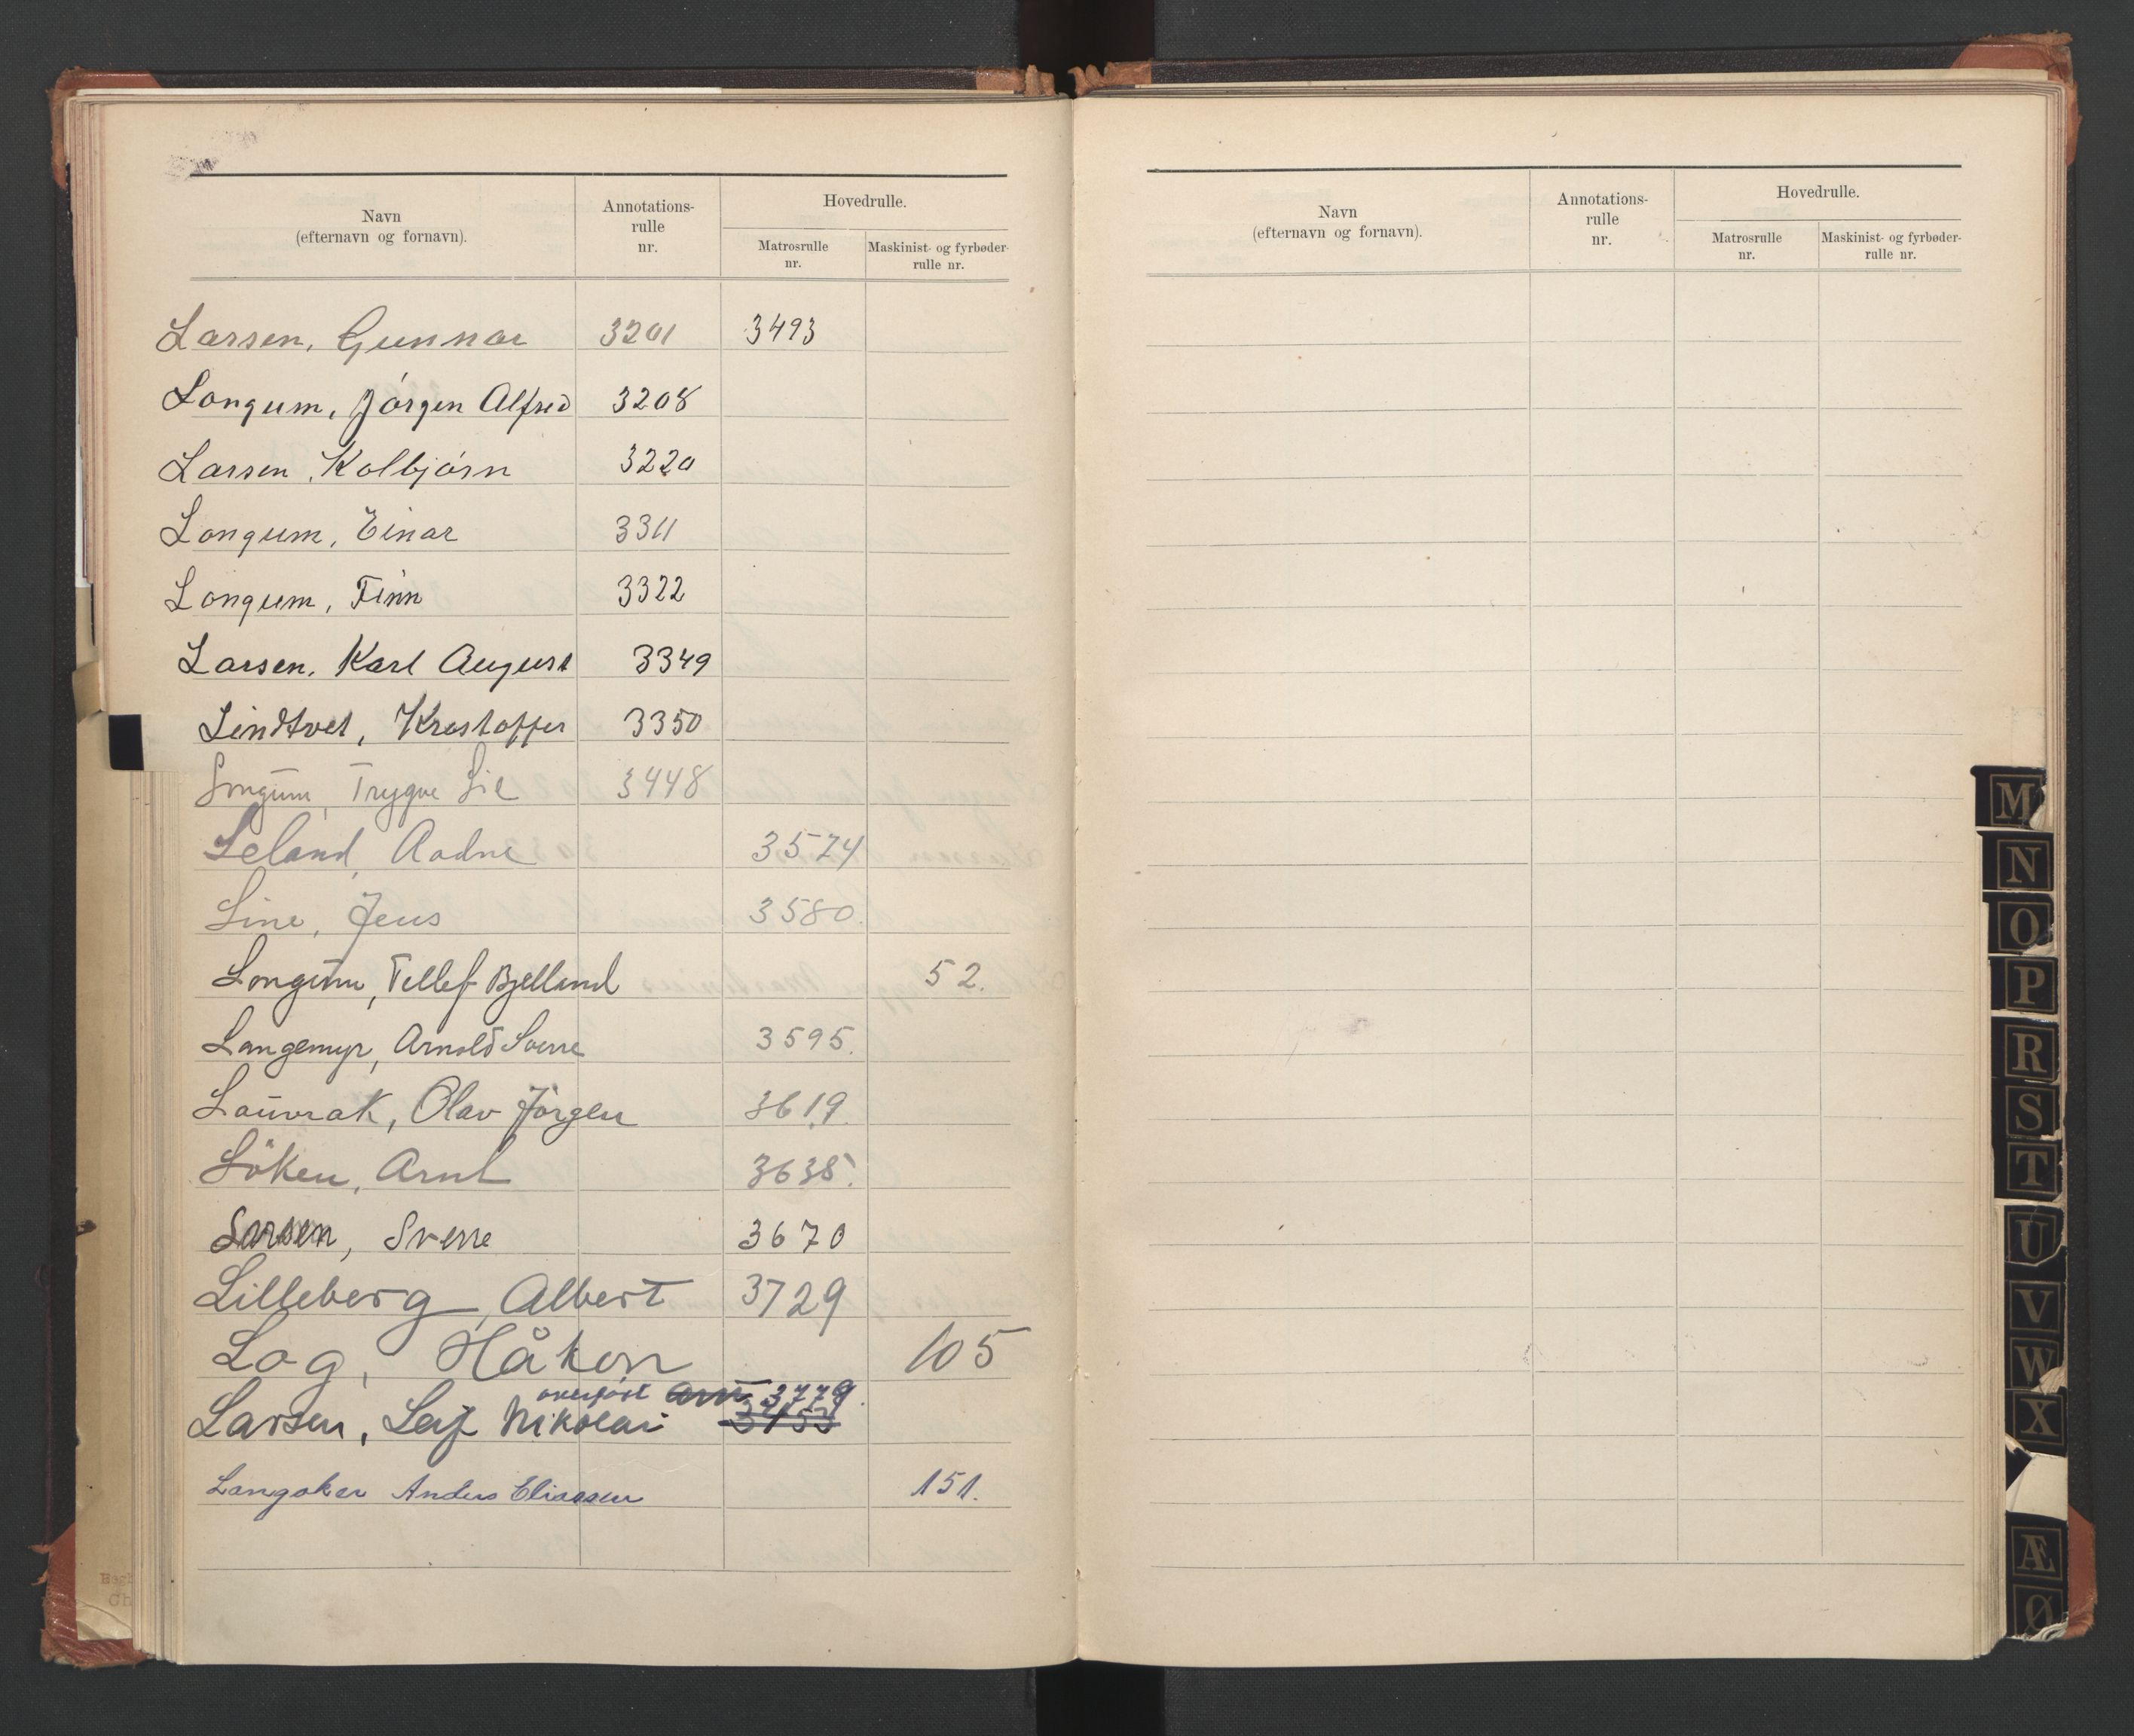 Navn
(efternavn og fornavn).
Annotations-
rulle
nr.
Hovedrulle.
Matrosrulle
nr.
Maskinist- og fyrbøder-
rulle nr.
Larsen, Gunnar 3201 3493
Longum, Jórgen Alfred 3208
Larsen, Kolbjórn 3220
Longum, Einar 3311
Longum, Finn 3322
Larsen, Karl August 3349
Lindtvet, Kristoffer 3350
Longum, Trygve Lie 3448
Leland, Aadne 3574
Line, Jens 3580.
Longum, Tellef Bjelland 52.
Langemyr, Arnold Sverre 3595.
Lauvrak, Olav Jörgen 3619.
Löken, Arnt 3635.
Larsen, Sverre 3670
Lilleberg, Albert 3729
Log, Håkon 105
overført 3779.
Larsen, Leif Nikolai 3753
Langaker Anders Eliassen 151.
Navn
(efternavn og fornavn).
Annotations-
rulle
nr.
Hovedrulle.
Matrosrulle
nr.
Maskinist- og fyrbøder-
rulle nr.
M
N
O
P
R
S
T
U
V
W
X
Æ
Ø